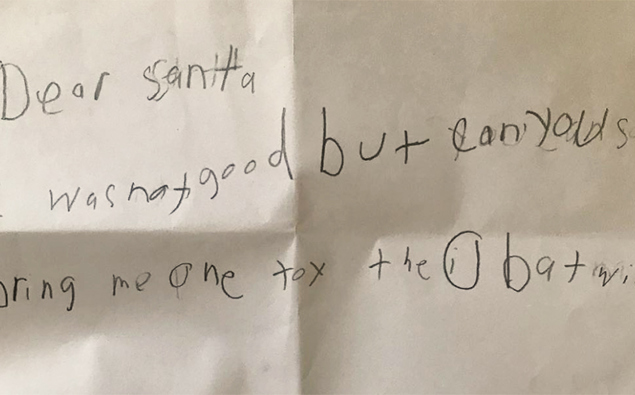 Dear Santta
was not good but can
bring me one tox the bat